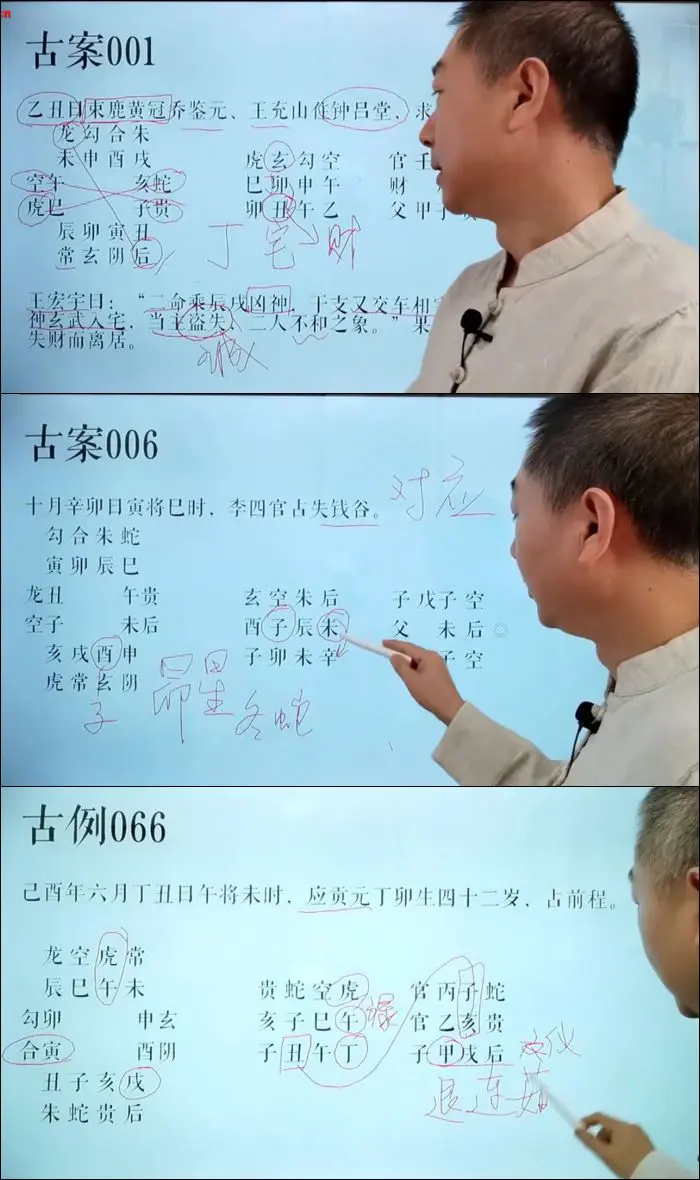 cn
古案001
乙丑日束鹿黄冠乔鉴元、王充山住钟吕堂,求
龙勾合朱
未申酉戌 虎玄勾空 官壬
空午 亥蛇 巳卯申午 财
虎巳 子贵 卯丑午乙 父甲子贵
辰卯寅丑
常玄阴后
丁宅财
王宏宇曰:“二命乘辰戌凶神,干支又交车相
神玄武入宅,当主盗失,二人不和之象。”果
失财而离居。
古案006
十月辛卯日寅将巳时,李四官占失钱谷。
对应
勾合朱蛇
寅卯辰巳
龙丑 午贵 玄空朱后 子戊子空
空子 未后 酉子辰未 父 未后
亥戌酉申 子卯未辛 子空
虎常玄阴
子 昴星 冬蛇
古例066
己酉年六月丁丑日午将未时,应贡元丁卯生四十二岁,占前程。
龙空虎常
辰巳午未 贵蛇空虎 官丙子蛇
勾卯 申玄 亥子巳午 禄 官乙亥贵
合寅 酉阴 子丑午丁 子甲戌后
丑子亥戌
朱蛇贵后
退连茹